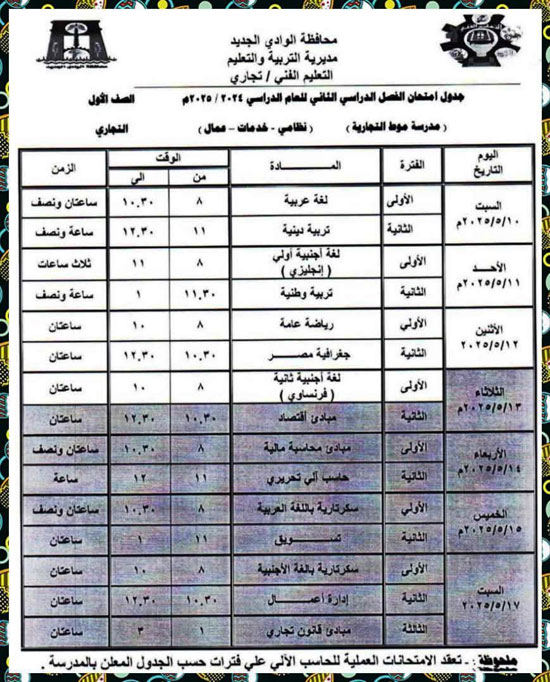 محافظة الوادي الجديد
مديرية التربية والتعليم
التعليم الفني / تجاري
محافظة الوادي الجديد
جدول امتحان الفصل الدراسي الثاني للعام الدراسي ٢٠٢٤ / ٢٠٢٥م الصف الأول
( مدرسة موط التجارية ) ( نظامي - خدمات - عمال ) التجاري
اليوم التاريخ الفترة المــادة الوقت الزمن
من الي
السبت ٢٠٢٥/٥/١٠م الأولى لغة عربية ٨ ١٠.٣٠ ساعتان ونصف
الثانية تربية دينية ١١ ١٢.٣٠ ساعة ونصف
الأحد ٢٠٢٥/٥/١١م الأولى لغة أجنبية أولي ( إنجليزي ) ٨ ١١ ثلاث ساعات
الثانية تربية وطنية ١١.٣٠ ١ ساعة ونصف
الأثنين ٢٠٢٥/٥/١٢م الأولي رياضة عامة ٨ ١٠ ساعتان
الثانية جغرافية مصر ١٠.٣٠ ١٢.٣٠ ساعتان
الثلاثاء ٢٠٢٥/٥/١٣م الأولى لغة أجنبية ثانية ( فرنساوي ) ٨ ١٠ ساعتان
الثانية مبادئ أقتصاد ١٠.٣٠ ١٢.٣٠ ساعتان
الأربعاء ٢٠٢٥/٥/١٤م الأولى مبادئ محاسبة مالية ٨ ١٠.٣٠ ساعتان ونصف
الثانية حاسب آلي تحريري ١١ ١٢ ساعة
الخميس ٢٠٢٥/٥/١٥م الأولى سكرتارية باللغة العربية ٨ ١٠.٣٠ ساعتان ونصف
الثانية تسـويق ١١ ١ ساعتان
السبت ٢٠٢٥/٥/١٧م الأولى سكرتارية بالغة الأجنبية ٨ ١٠ ساعتان
الثانية إدارة أعمـال ١٠.٣٠ ١٢.٣٠ ساعتان
الثالثة مبادئ قانون تجاري ١ ٣ ساعتان
ملحوظة :- تعقد الامتحانات العملية للحاسب الآلي علي فترات حسب الجدول المعلن بالمدرسة .